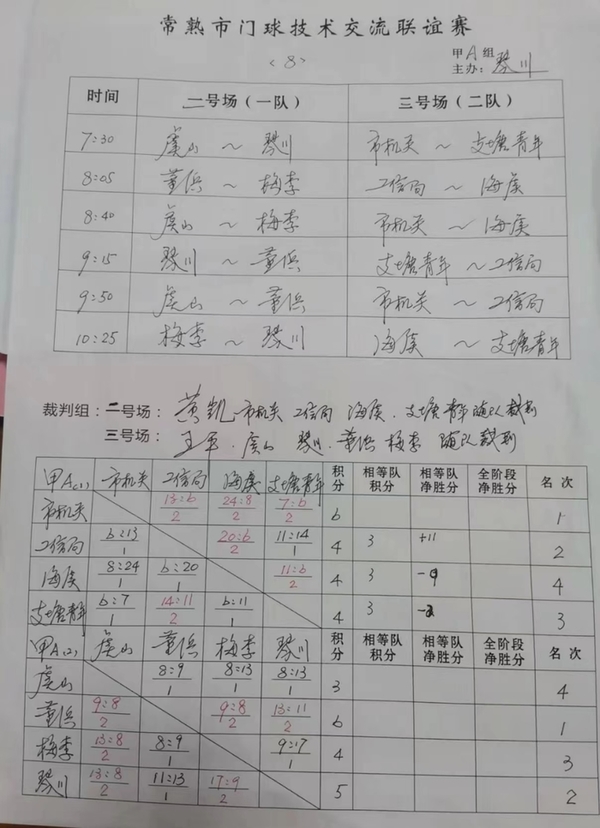 常熟市门球技术交流联谊赛
<8>
甲A组
主办：琴川
时间 二号场（一队） 三号场（二队）
7:30 虞山～琴川 市机关～支塘青年
8:05 董浜～梅李 工信局～海虞
8:40 虞山～梅李 市机关～海虞
9:15 琴川～董浜 支塘青年～工信局
9:50 虞山～董浜 市机关～工信局
10:25 梅李～琴川 海虞～支塘青年
裁判组：二号场：黄凯.市机关 工信局 海虞.支塘青年随队裁判
三号场：王平.虞山 琴川.董浜 梅李 随队裁判
甲A(1) 市机关 工信局 海虞 支塘青年 积分 相等队积分 相等队净胜分 全阶段净胜分 名次
市机关 13:6/2 24:8/2 7:6/2 6 1
工信局 6:13/1 20:6/2 11:14/1 4 3 +11 2
海虞 8:24/1 6:20/1 11:6/2 4 3 -9 4
支塘青年 6:7/1 14:11/2 6:11/1 4 3 -2 3
甲A(2) 虞山 董浜 梅李 琴川 积分 相等队积分 相等队净胜分 全阶段净胜分 名次
虞山 8:9/1 8:13/1 8:13/1 3 4
董浜 9:8/2 9:8/2 13:11/2 6 1
梅李 13:8/2 8:9/1 9:17/1 4 3
琴川 13:8/2 11:13/1 17:9/2 5 2